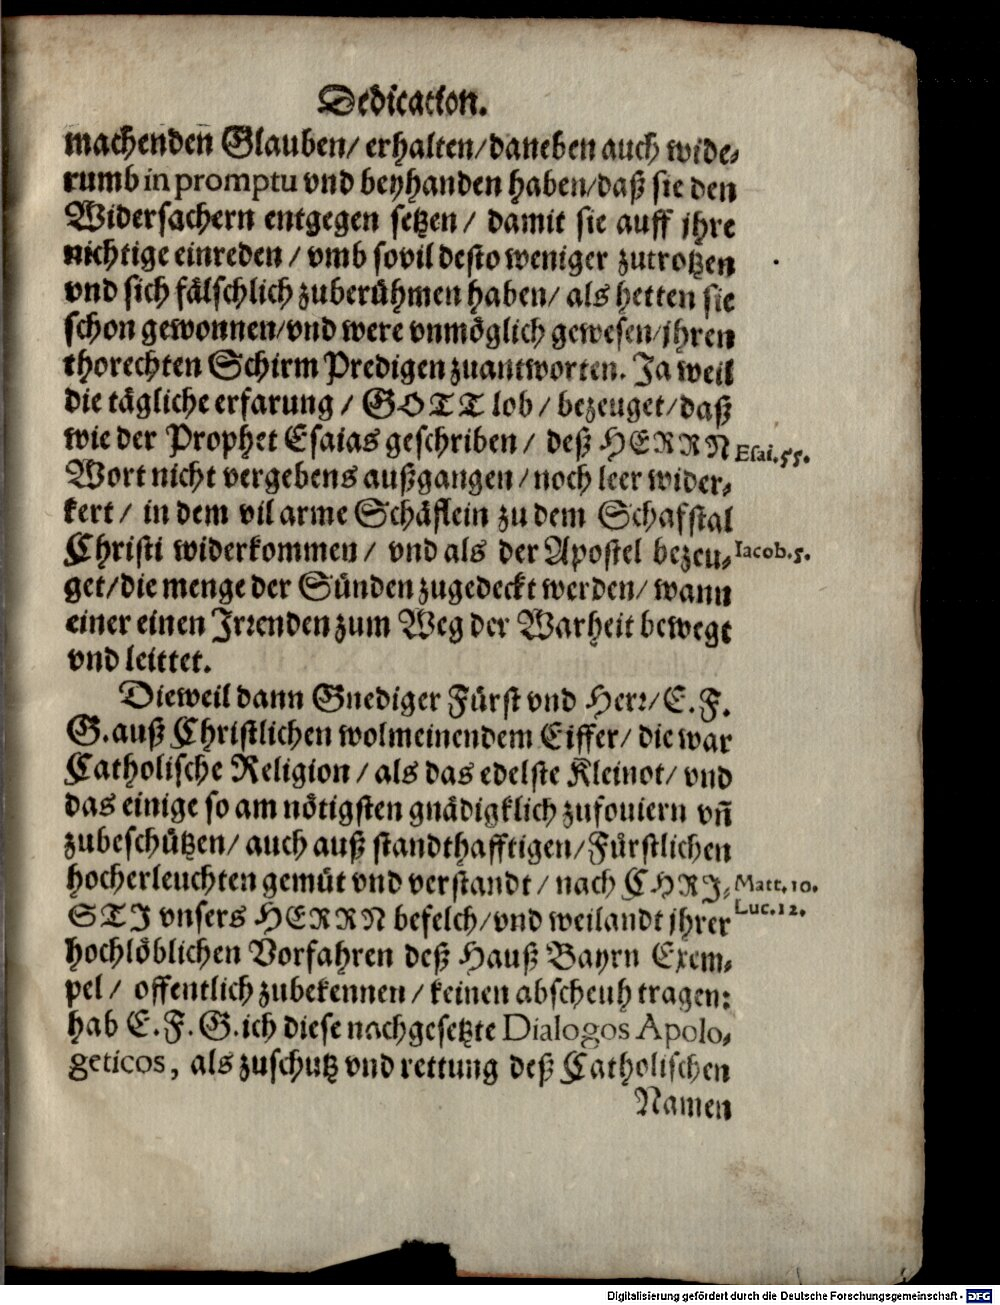 Dedication.
machenden Glauben/ erhalten/daneben auch wide-
rumb in promptu vnd beyhanden haben/daß sie den
Widersachern entgegen setzen/ damit sie auff jhre
nichtige einreden/ vmb sovil desto weniger zutrotzen
vnd sich fälschlich zuberühmen haben/ als hetten sie
schon gewonnen/vnd were vnmöglich gewesen/jhren
thorechten Schirm Predigen zuantworten. Ja weil
die tägliche erfarung/ GOTT lob/ bezeuget/daß
wie der Prophet Esaias geschriben/ deß HERRN
Esai.55.
Wort nicht vergebens außgangen/noch leer wider-
kert/ in dem vil arme Schäflein zu dem Schafstal
Christi widerkommen/ vnd als der Apostel bezeu-
Iacob.5.
get/die menge der Sünden zugedeckt werden/ wann
einer einen Irrenden zum Weg der Warheit bewegt
vnd leittet.
Dieweil dann Gnediger Fürst vnd Herr/E.F.
G.auß Christlichen wolmeinendem Eiffer/ die war
Catholische Religion/ als das edelste Kleinot/ vnd
das einige so am nötigsten gnädigklich zufouiern vñ
zubeschützen/ auch auß standthafftigen/Fürstlichen
hocherleuchten gemüt vnd verstandt/ nach CHRJ-
Matt.10.
STJ vnsers HERRN befelch/vnd weilandt jhrer
Luc.12.
hochlöblichen Vorfahren deß Hauß Bayrn Exem-
pel/ offentlich zubekennen/ keinen abscheuh tragen:
hab E.F.G.ich diese nachgesetzte Dialogos Apolo-
geticos, als zuschutz vnd rettung deß Catholischen
Namen
Digitalisierung gefördert durch die Deutsche Forschungsgemeinschaft - DFG